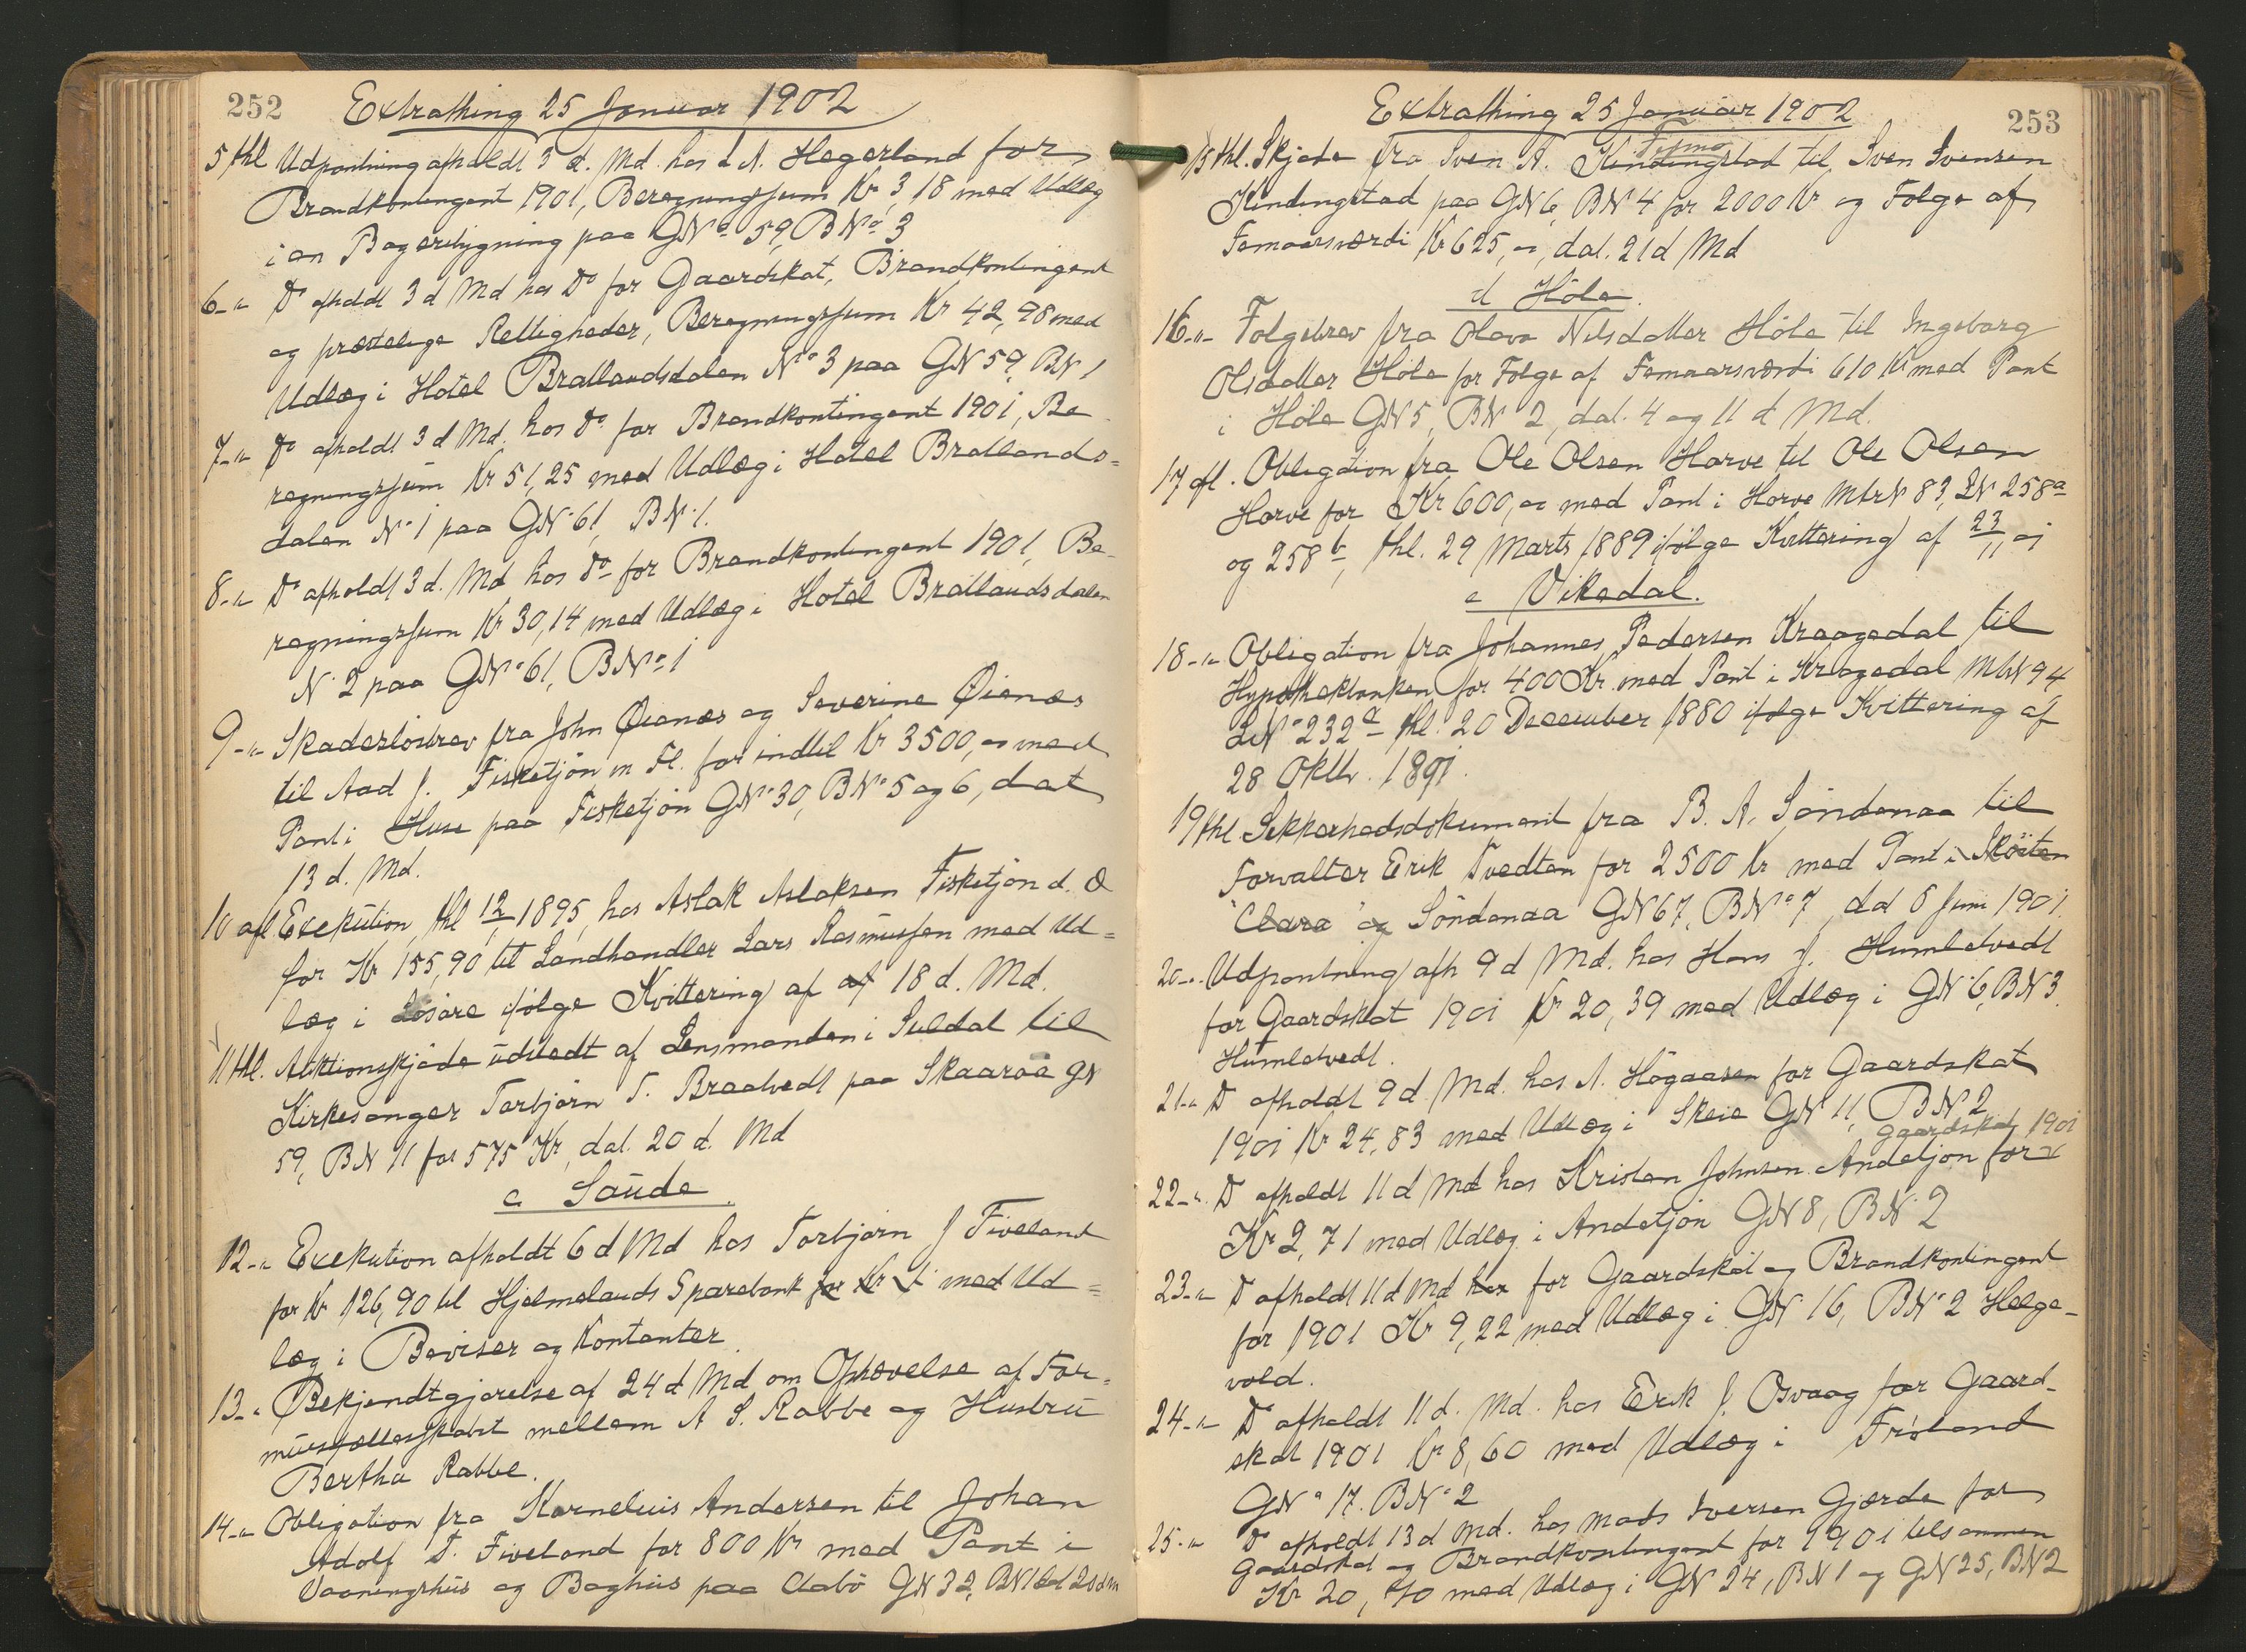 252
Extrathing 25 Januar 1902
5 thl Udpantning afholdt 3 d. Md. hos L A. Hegerland for
Brandkontingent 1901, Beregningssum Kr 3,18 med Udlæg
i en Bageribygning paa GNo 59, BNo 3
6 -"- Do afholdt 3 d Md hos Do for Gaardskat, Brandkontingent
og præstelige Rettigheder, Beregningssum Kr 42,98 med
Udlæg i Hotel Bratlandsdalen No 3 paa GN 59, BN 1
7 -"- Do afholdt 3 d Md. hos Do for Brandkontingent 1901, Be-
regningssum Kr 51,25 med Udlæg i Hotel Bratlands=
dalen No 1 paa GN 61, BN 1.
8 -"- Do afholdt 3 d. Md hos do for Brandkontingent 1901, Be-
regningssum Kr 30,14 med Udlæg i Hotel Bratlandsdalen
N 2 paa GNo 61, BNo 1
9 -"- Skadesløsbrev fra John Øienæs og Severine Øienæs
til Aad J. Fisketjøn m Fl. for indtil Kr 3500,00 med
Pant i Huse paa Fisketjøn GNo 30, BNo 5 og 6, dat
13 d. Md.
10 afl Exekution, thl 12/1 1895, hos Aslak Aslaksen Fisketjøn d. æ
for Kr 155,90 til Landhandler Lars Rasmussen med Ud=
læg i Løsøre ifølge Kvittering af af 18 d. Md.
11 thl. Auktionsskjøde udstedt af Lensmanden i Suldal til
Kirkesanger Torbjørn T. Braatvedt paa Skaaraa GN
59, BN 11 for 575 Kr, dat. 20 d. Md
c Saude
12 -"- Exekution afholdt 6 d Md hos Torbjørn J Fiveland
for Kr 126,90 til Hjelmelands Sparebank for Kr 1 med Ud=
læg i Beviser og Kontanter
13 -"- Bekjendtgjørelse af 24 d Md om Ophævelse af For=
muesfællesskabet mellem A S. Rabbe og Hustru
Bertha Rabbe.
14 -"- Obligation fra Kornelius Andersen til Johan
Adolf T. Fiveland for 800 Kr med Pant i
Vaaningshus og Baghus paa Aabø GN 32, BN 1 dat 20 d m
253
Extrathing 25 Januar 1902
Fosmo
15 thl. Skjøde fra Sven A. Kindingstad til Sven Svensen
Kindingstad paa GN 6, BN 4 for 2000 Kr og Følge af
Femaarsværdi Kr 625,00, dat. 21 d Md
d Høle.
16 -"- Følgebrev fra Olava Nilsdatter Høle til Ingeborg
Olsdatter Høle for Følge af Femaarsværdi 610 Kr med Pant
i Høle GN 5, BN 2, dat. 4 og 11 d Md.
17 afl. Obligation fra Ole Olsen Harve til Ole Olsen
Harve for Kr 600,00 med Pant i Harve MtrN 83, LN 258a
og 258b, thl. 29 Marts 1889 ifølge Kvittering af 23/11 01
e Vikedal.
18 -"- Obligation fra Johannes Pedersen Kraagedal til
Hypothekbanken for 400 Kr. med Pant i Kraagedal MtrN 94
LNo 232a thl. 20 December 1880 ifølge Kvittering af
28 Oktbr. 1891.
19 thl Sekkerhedsdokument fra B. A. Søndenaa til
Forvalter Erik Tvedten for 2500 Kr med Pant i Skøiten
"Clara" og Søndenaa GN 67, BNo 7, dat 8 Juni 1901.
20 -"- Udpantning afh 9 d Md. hos Hans J. Humletvedt
for Gaardskat 1901 Kr 20,39 med Udlæg i GN 6, BN 3.
Humletvedt.
21 -"- Do afholdt 9 d Md. hos A. Høgaasen for Gaardskat
1901 Kr 24,83 med Udlæg i Skeie GN 11, BN 2
Gaardskat 1901
22 -"- Do afholdt 11 d Md hos Kristen Johnsen Andetjøn for x
Kr 2,71 med Udlæg i Andetjøn GN 8, BN 2
23 -"- Do afholdt 11 d Md hos for Gaardskat og Brandkontingent
for 1901 Kr 9,22 med Udlæg i GN 16, BN 2 Helge-
vold.
24 -"- Do afholdt 11 d. Md. hos Erik J. Osvaag for Gaard-
skat 1901 Kr 8,60 med Udlæg i Frøland
GNo 17. BNo 2
25 -"- Do afholdt 13 d Md. hos Mads Iversen Gjærde for
Gaardskat og Brandkontingent for 1901 tilsammen
Kr 20,70 med Udlæg i GN 24, BN 1 og GN 25, BN 2